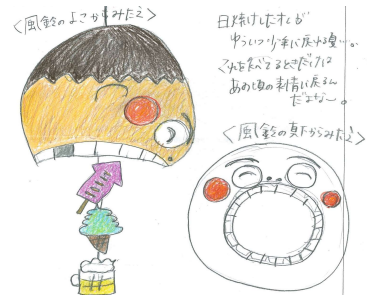 <風鈴のよこからみたえ>
日焼けしたオレが
ゆういつ少年に戻れる夏…。
これを食べてるときだけは
あの頃の 青に戻るん
だよな〜。
<風鈴の真下からみたえ>